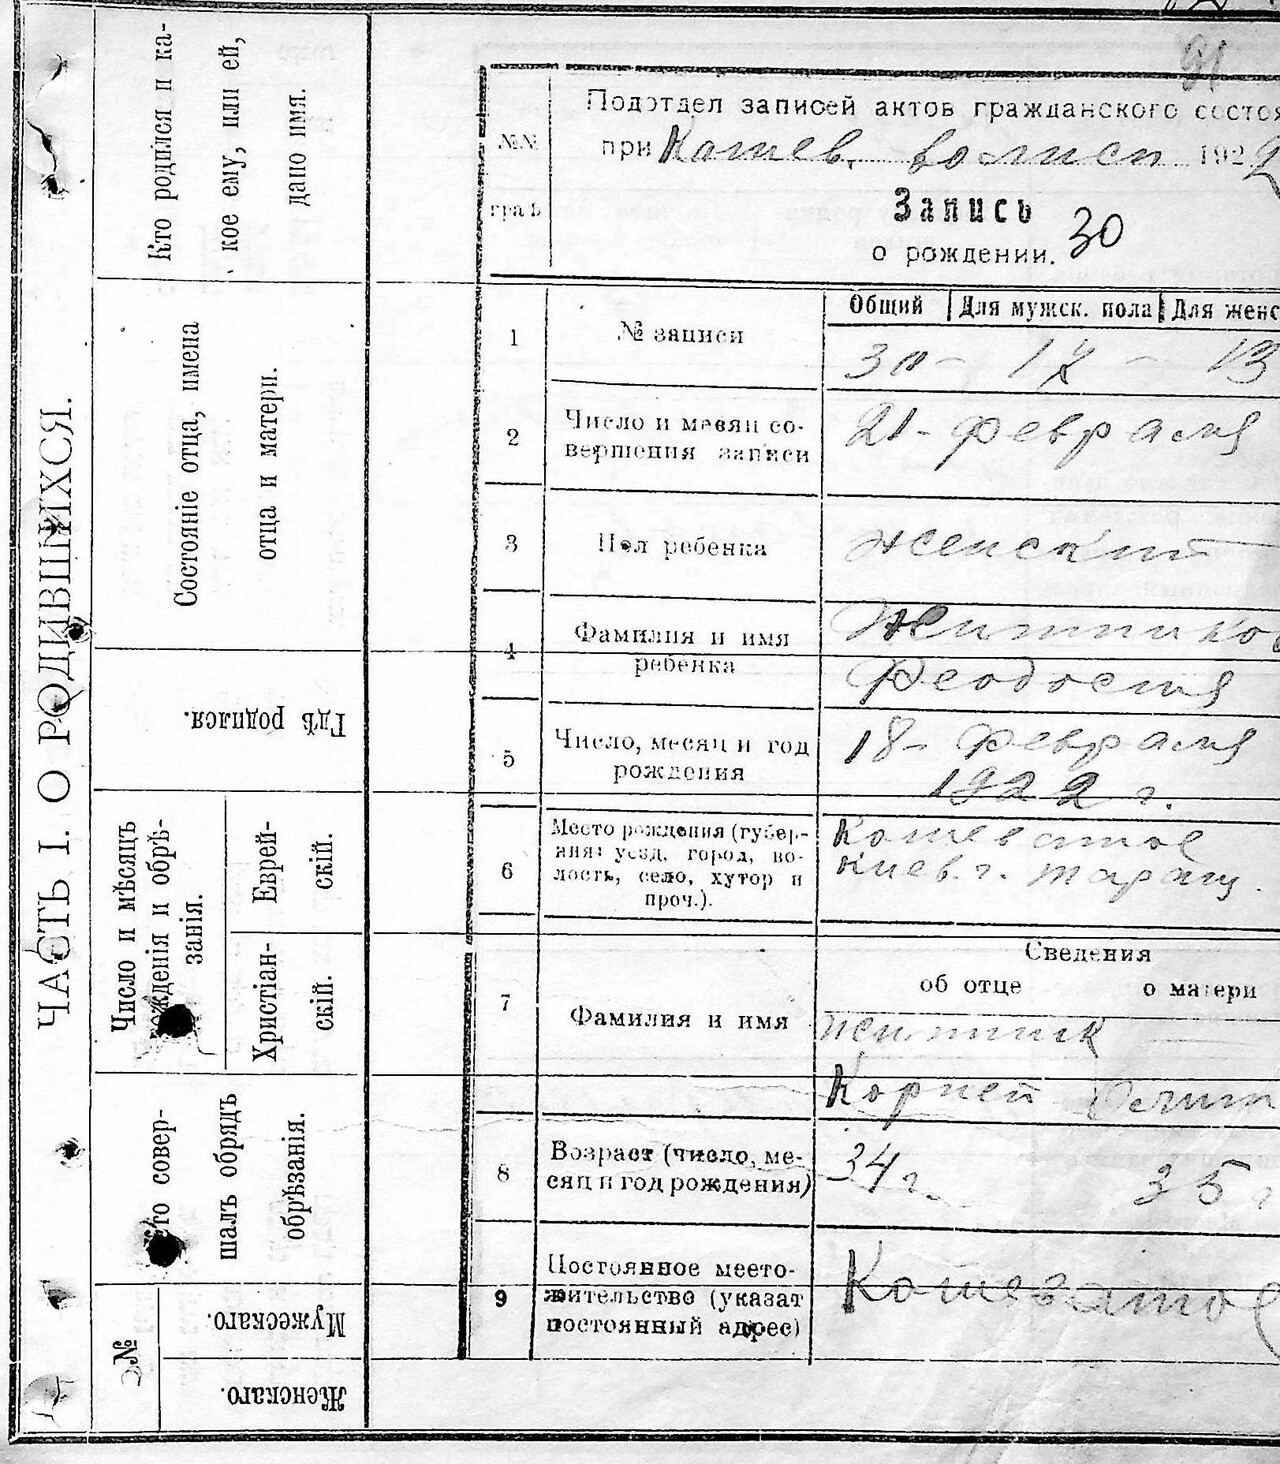 ЧАСТЬ I. О РОДИВШИХСЯ.
Кто родился и ка-
кое ему, или ей,
дано имя.
Состояніе отца, имена
отца и матери.
Гдѣ родился.
Число и мѣсяцъ
рожденія и обрѣ-
занія.
Еврей-
скій.
Христіан-
скій.
Кто совер-
шалъ обрядъ
обрѣзанія.
№
Мужескаго.
Женскаго.
91
№№
граф
Подотдел записей актов гражданского состоя
при Кашев. волисп 1922
Запись
о рождении. 30
Общий | Для мужск. пола | Для женс
1 № записи 30 - 17 - 13
2 Число и месяц со-
вершения записи
21 - февраля
3 Пол ребенка женский
4 Фамилия и имя
ребенка
Житников
Феодосия
5 Число, месяц и год
рождения
18 - февраля
1922 г.
6 Место рождения (губер-
ния: уезд, город, во-
лость, село, хутор и
проч.).
Кошеватое
Киев. г. Таращ.
Сведения
об отце о матери
7 Фамилия и имя
Житник
Корней
8 Возраст (число, ме-
сяц и год рождения)
34 г. 35 г
9 Постоянное место-
жительство (указат
постоянный адрес)
Кошеватое